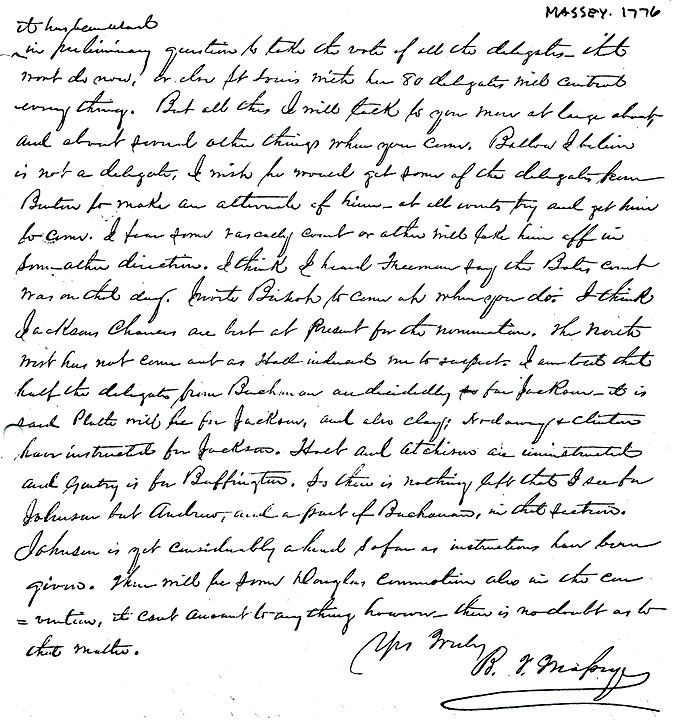 MASSEY. 1776
it has been usual
in preliminary question to take the vote of all the delegates – that
wont do now, or else St Louis with her 80 delegates will control
every thing. But all this I will talk to you more at large about,
and about several other things when you come. Ballou I believe
is not a delegate, I wish he would get some of the delegates from
Benton to make an alternate of him – at all events try and get him
to come. I fear some rascally court or other will take him off in
some other direction. I think I heard Freeman say the Bates court
was on that day. Invite Bishop to come up when you do. I think
Jacksons Chances are best at Present for the nomination. The North
west has not come out as Hall induced me to suspect. I am told that
half the delegates from Buchanan are decidedly for Jackson – it is
said Platte will be for Jackson, and also Clay; Nodaway & Clinton
have instructed for Jackson. Holt and Atchison are uninstructed
and Gentry is for Buffington. So there is nothing left that I see for
Johnson but Andrew, and a part of Buchanan, in that section.
Johnson is yet considerably ahead so far as instructions have been
given. There will be some Douglas commotion also in the con
= vention, it cant amount to any thing however – there is no doubt as to
that matter.
Yrs Truly
B. F. Massey